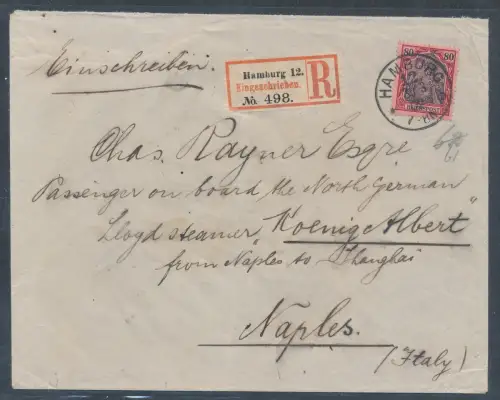 Einschreiben.
Hamburg 12.
Eingeschrieben.
No. 498.
R
80 80
HAMBURG
* 7-8
Chas. Rayner Esqre
Passenger on board the North German
Lloyd steamer "Koenig Albert"
from Naples to Shanghai
Naples.
(Italy)